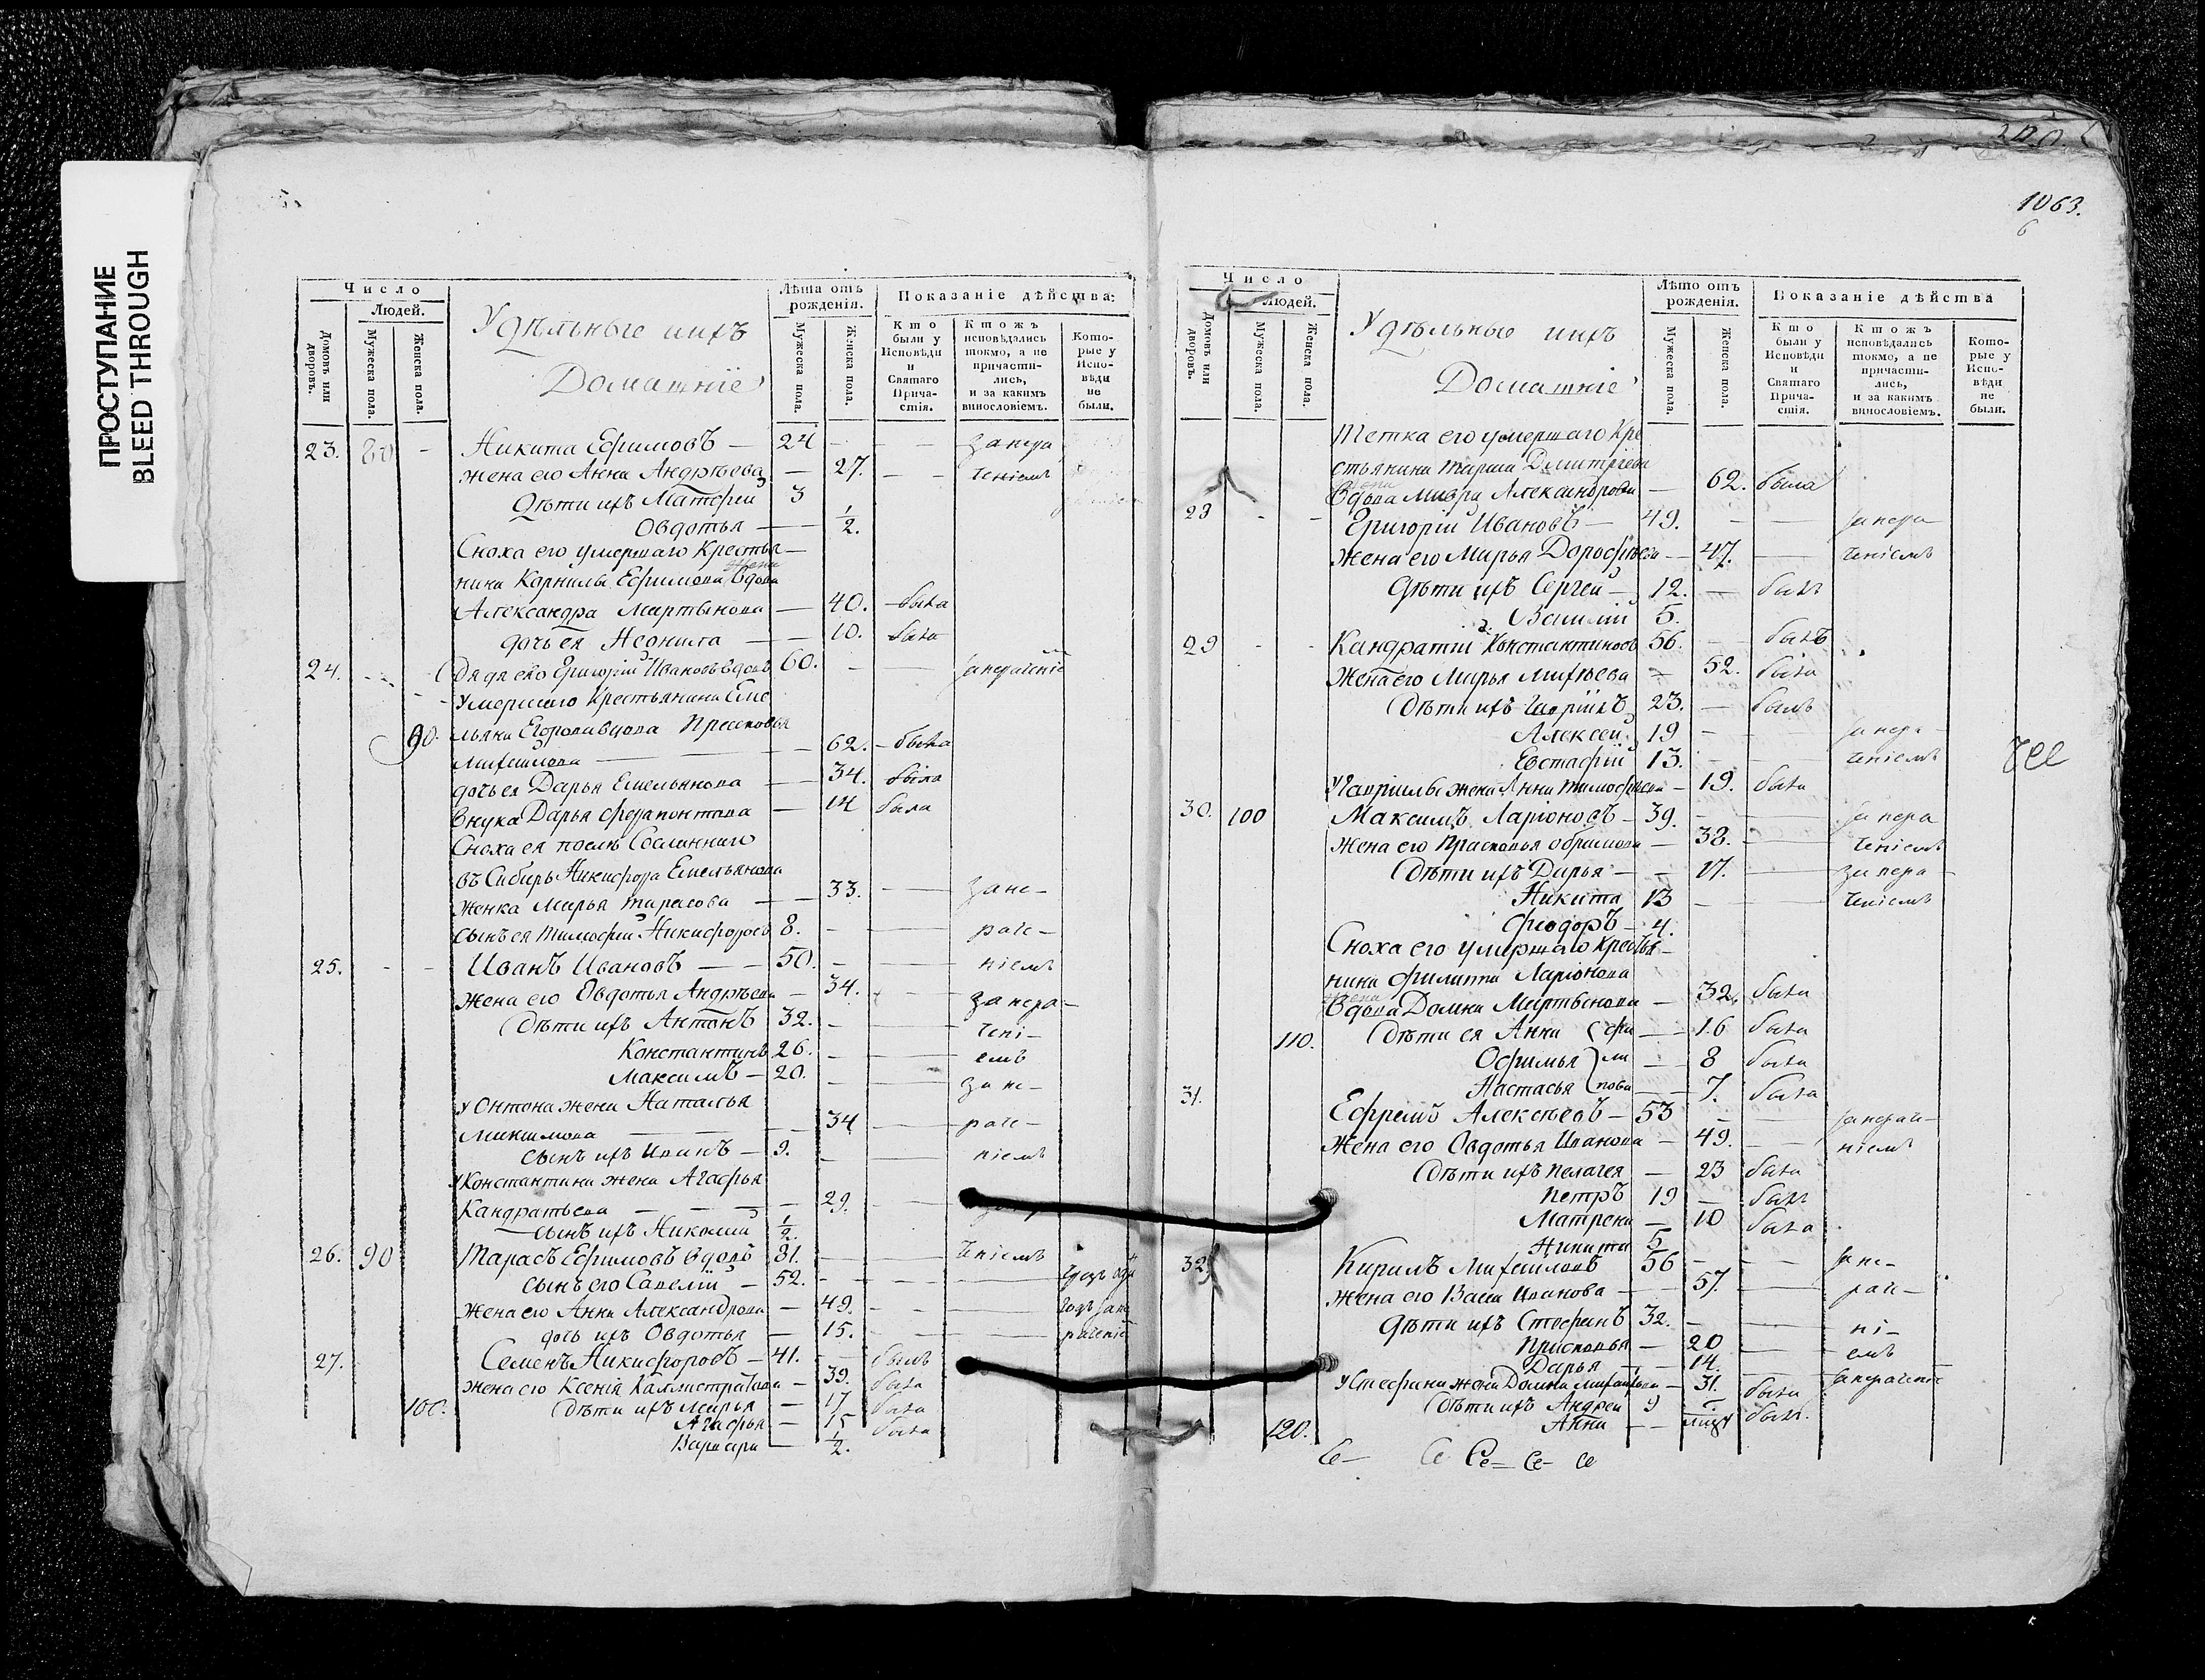 ПРОСТУПАНИЕ
BLEED THROUGH
Число
Людей.
Домовъ или дворовъ.
Мужеска пола.
Женска пола.
Удѣльные ихъ
Домашніе
Лѣта отъ рожденія.
Мужеска пола.
Женска пола.
Показаніе дѣйства:
Кто были у Исповѣди и Святаго Прича-стія.
Ктожъ исповѣдались токмо, а не причасти-лись, и за какимъ винословіемъ.
Кото-рые у Испо-вѣди не были.
23. 80 - Никита Ефимовъ — 24 - — занера
жена его Анна Андрѣева — 27. - — ченіемъ
Дѣти ихъ Матфей 3
Овдотья — 1/2.
Сноха его умершаго Крестья-
нина Карнилы Ефимова жена Вдова
Александра Мартынова — 40. - была
дочь ея Неонила — 10. была
24. Дядя его Григорій Ивановъ вдовъ 60. - занераченіе
Умершаго Крестьянина Еме
90. льяна Егорова вдова Прасковья
Михайлова — 62. - была
дочь ея Дарья Емельянова — 34. была
Внука Дарья Ферапонтова — 14 была
Сноха ея послѣ Сосланнаго
въ Сибирь Никифора Емельянова
Женка Марья Тарасова — 33. — зане-
сынъ ея Тимофей Никифоровъ 8. - — раче-
25. - - Иванъ Ивановъ — 50. - — ніемъ
жена его Овдотья Андрѣева — 34. — занера-
Дѣти ихъ Антонъ 32. - — чені-
Константинъ 26. - — емъ
Максимъ — 20. - — зане-
у Онтона жена Наталья
Максимова — 34 — раче-
сынъ ихъ Иванъ — 9. — ніемъ
у Константина жена Агафья
Кандратьева — 29. —
сынъ ихъ Николай 1/2.
26. 90 Тарасъ Ефимовъ вдовъ 81. — ченіемъ
сынъ его Савелій — 52. - —
жена его Анна Александрова — 49. - —
дочь ихъ Овдотья — 15. - —
27. Семенъ Никифоровъ — 41. - былъ
жена его Ксенія Каллистратова — 39. была
100. Дѣти ихъ Марья — 17 была
Агафья — 15 была
Варвара — 1/2.
1063.
6
Число
Людей.
Домовъ или дворовъ.
Мужеска пола.
Женска пола.
Удѣльные ихъ
Домашніе
Лѣто отъ рожденія.
Мужеска пола.
Женска пола.
Показаніе дѣйства
Кто были у Исповѣди и Святаго Прича-стія.
Ктожъ исповѣдались токмо, а не причасти-лись, и за какимъ винословіемъ.
Кото-рые у Испо-вѣди не были.
Тетка его умершаго Кре
стьянина Димитріева
Вдова Александрова — 62. была
28 - - Григорій Ивановъ — 49. - — занера-
жена его Марья Дорофѣева — 47. — ченіемъ
Дѣти ихъ Сергей — 12. — былъ
Василій 5.
29 - - Кандратій Константиновъ 56. - былъ
Жена его Марья Михѣева — 52. была
Дѣти ихъ Гавріилъ 23. — былъ
Алексей 19 - — занера-
Евстафій 13. - — ченіемъ
У Гавріилы жена Анна Тимофѣева — 19. была
30. 100 Максимъ Ларіоновъ — 39. - — занера
жена его Прасковья Ефимова — 38. — ченіемъ
Дѣти ихъ Дарья — 17. — занера
Никита 13 - — ченіемъ
Фіодоръ — 4.
Сноха его умершаго Крестья-
нина Филиппа Ларіонова
жена
Вдова Домна Мартынова — 32. была
110. Дѣти ея Анна фи — 16 была
Офимья ли — 8 была
Настасья пова — 7. была
31. Ефремъ Алексѣевъ — 53 — занерач-
Жена его Овдотья Иванова — 49. — ніемъ
Дѣти ихъ Пелагея — 23 была
Петръ 19 — былъ
Матрена — 10 была
Никита 5
32. Кирилъ Михайловъ 56 - — зане-
жена его Васа Иванова — 57. — раче-
Дѣти ихъ Стефанъ 32. - — ні-
Прасковья — 20 — емъ
Дарья — 14. —
У Стефана жена Домна Михайлова — 31. была занераченіе
Дѣти ихъ Андрей 9 — былъ.
120. Анна —
Се- Се Се- Се- Се